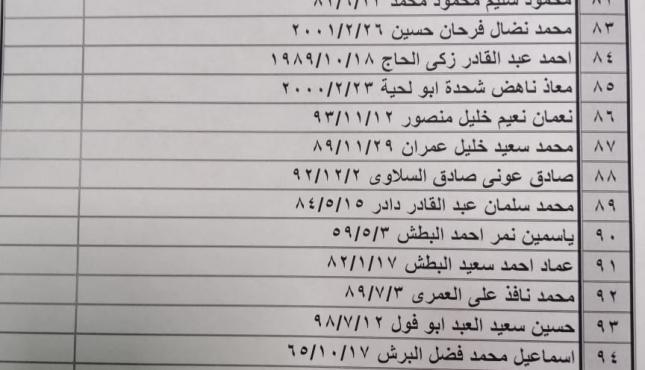 ٨٣ محمد نضال فرحان حسين ٢٠٠١/٢/٢٦
٨٤ احمد عبد القادر زكى الحاج ١٩٨٩/١٠/١٨
٨٥ معاذ ناهض شحدة ابو لحية ٢٠٠٠/٢/٢٣
٨٦ نعمان نعيم خليل منصور ٩٣/١١/١٢
٨٧ محمد سعيد خليل عمران ٨٩/١١/٢٩
٨٨ صادق عونى صادق السلاوى ٩٢/١٢/٢
٨٩ محمد سلمان عبد القادر دادر ٨٤/٥/١٥
٩٠ ياسمين نمر احمد البطش ٥٩/٥/٣
٩١ عماد احمد سعيد البطش ٨٢/١/١٧
٩٢ محمد نافذ على العمرى ٨٩/٧/٣
٩٣ حسين سعيد العبد ابو فول ٩٨/٧/١٢
٩٤ اسماعيل محمد فضل البرش ٦٥/١٠/١٧